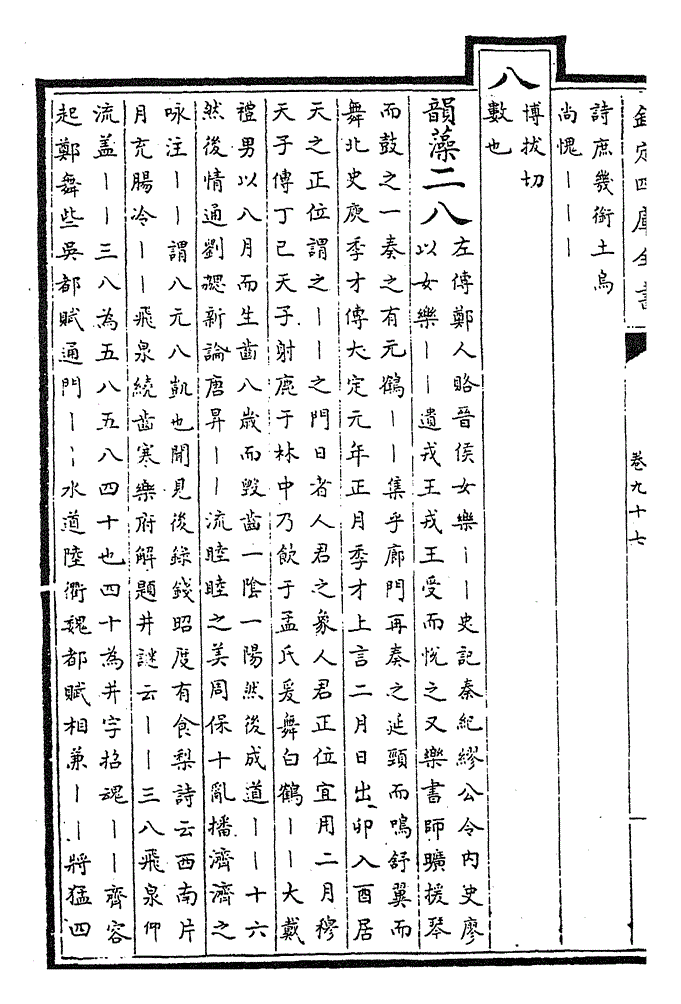 欽定四庫全書
卷九十七
一
詩庶幾銜土烏
尚愧丨丨丨
八
博拔切
數也
韻藻二八
左傳鄭人賂晉侯女樂丨丨史記秦紀繆公令內史廖
以女樂丨丨遺戎王戎王受而悅之又樂書師曠援琴
而鼓之一奏之有元鶴丨丨集乎廊門再奏之延頸而鳴舒翼而
舞北史庾季才傳大定元年正月季才上言二月日出卯入酉居
天之正位謂之丨丨之門日者人君之象人君正位宜用二月穆
天子傳丁已天子射鹿于林中乃飲于孟氏爰舞白鶴丨丨大戴
禮男以八月而生齒八歲而毀齒一陰一陽然後成道丨丨十六
然後情通劉勰新論唐昇丨丨流睦睦之美周保十亂播濟濟之
咏注丨丨謂八元八凱也聞見後錄錢昭度有食梨詩云西南片
月充腸冷丨丨飛泉繞齒寒樂府解題井謎云丨丨三八飛泉仰
流盖丨丨三八為五八五八四十也四十為井字招魂丨丨齊容
起鄭舞些吳都賦通門丨丨水道陸衢魏都賦相兼丨丨將猛四